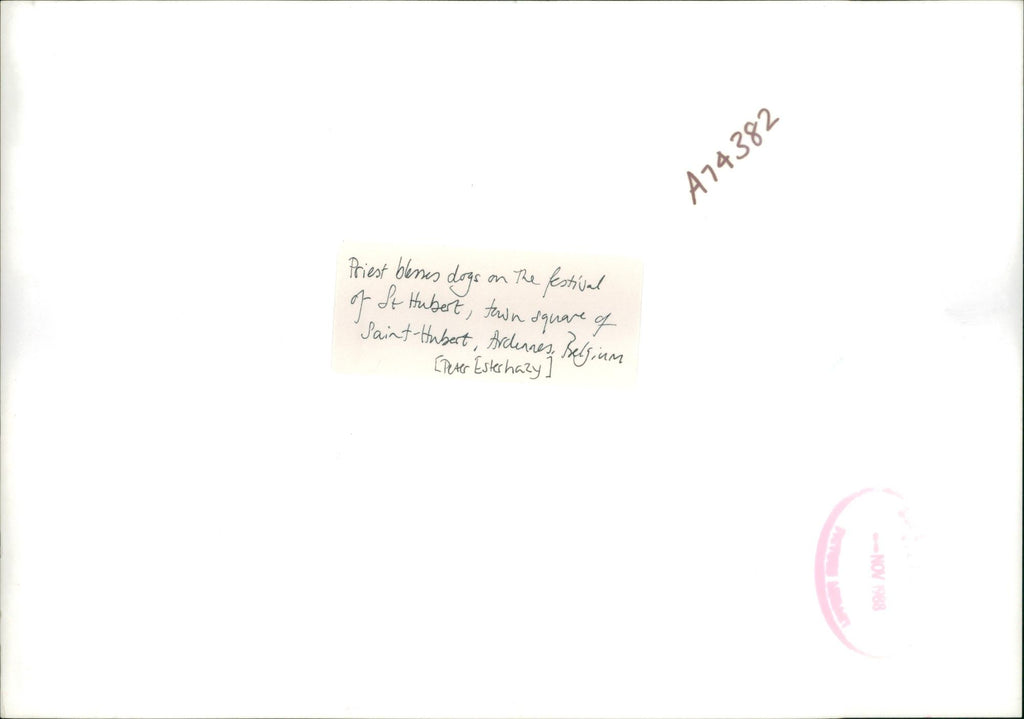 A74382
Priest blesses dogs on the festival
of St Hubert, town square of
Saint-Hubert, Ardennes, Belgium
[Peter Esterhazy]
NOV 1988
PICTURE LIBRARY